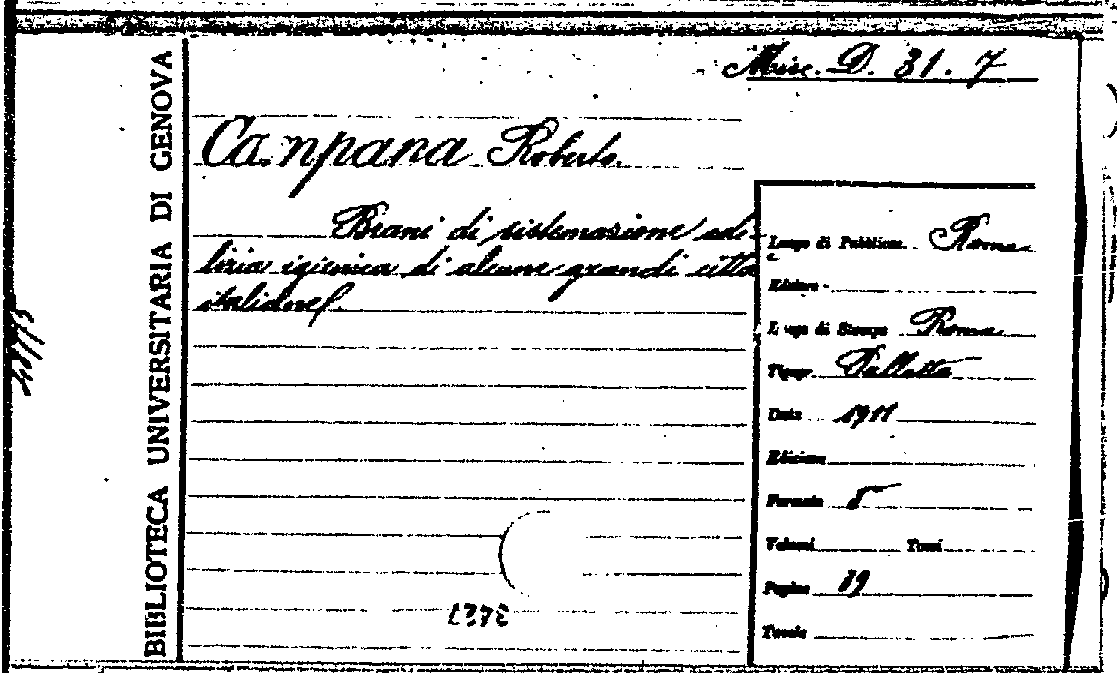 Misc. D. 31. 7
BIBLIOTECA UNIVERSITARIA DI GENOVA
Campana Roberto.
Brani di sistemazione edi-
lizia igienica di alcune grandi città
italiane
Luogo di Pubblicaz. Roma
Editore
Luogo di Stampa Roma
Tipogr. Pallotta
Data 1911
Edizione
Formato 8°
Volumi Tomi
Pagine 39
Tavole